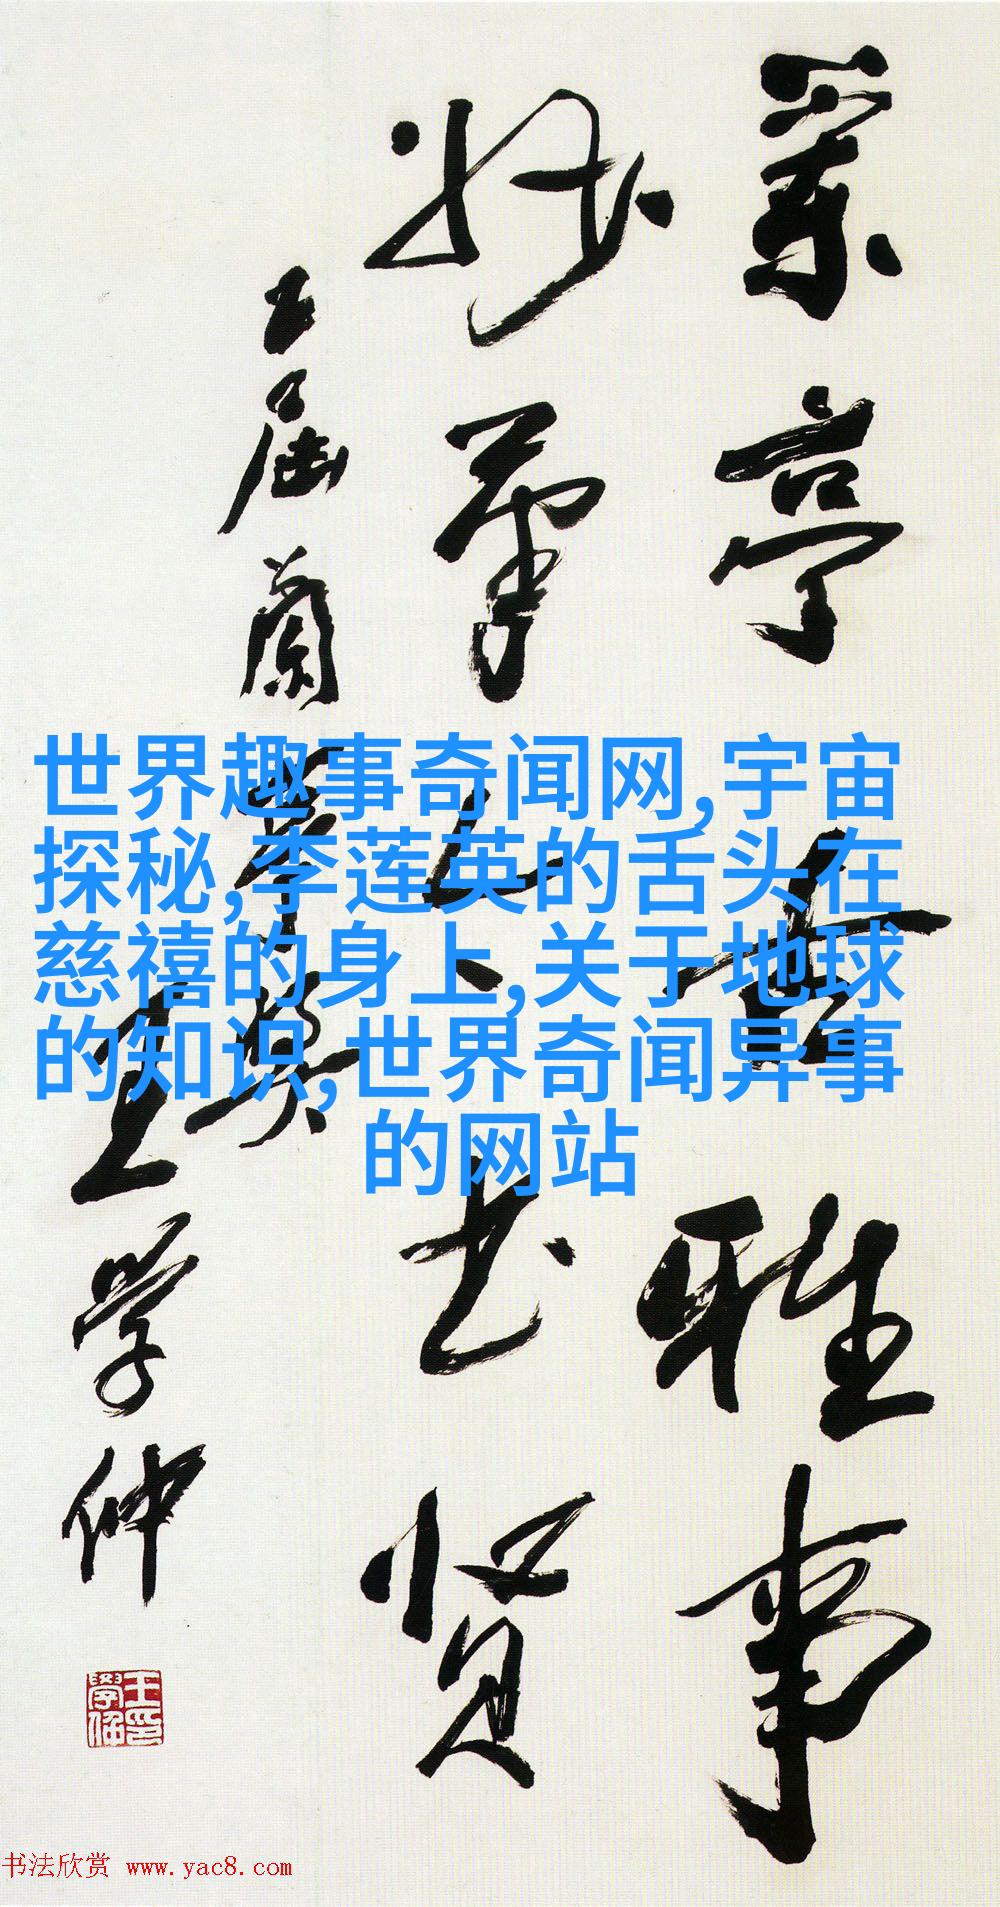 兰亭古雅事
妙笔今书贤
五届兰亭奖
王学仲
世界趣事奇闻网,宇宙
探秘,李莲英的舌头在
慈禧的身上,关于地球
的知识,世界奇闻异事
的网站
书法欣赏 www.yac8.com